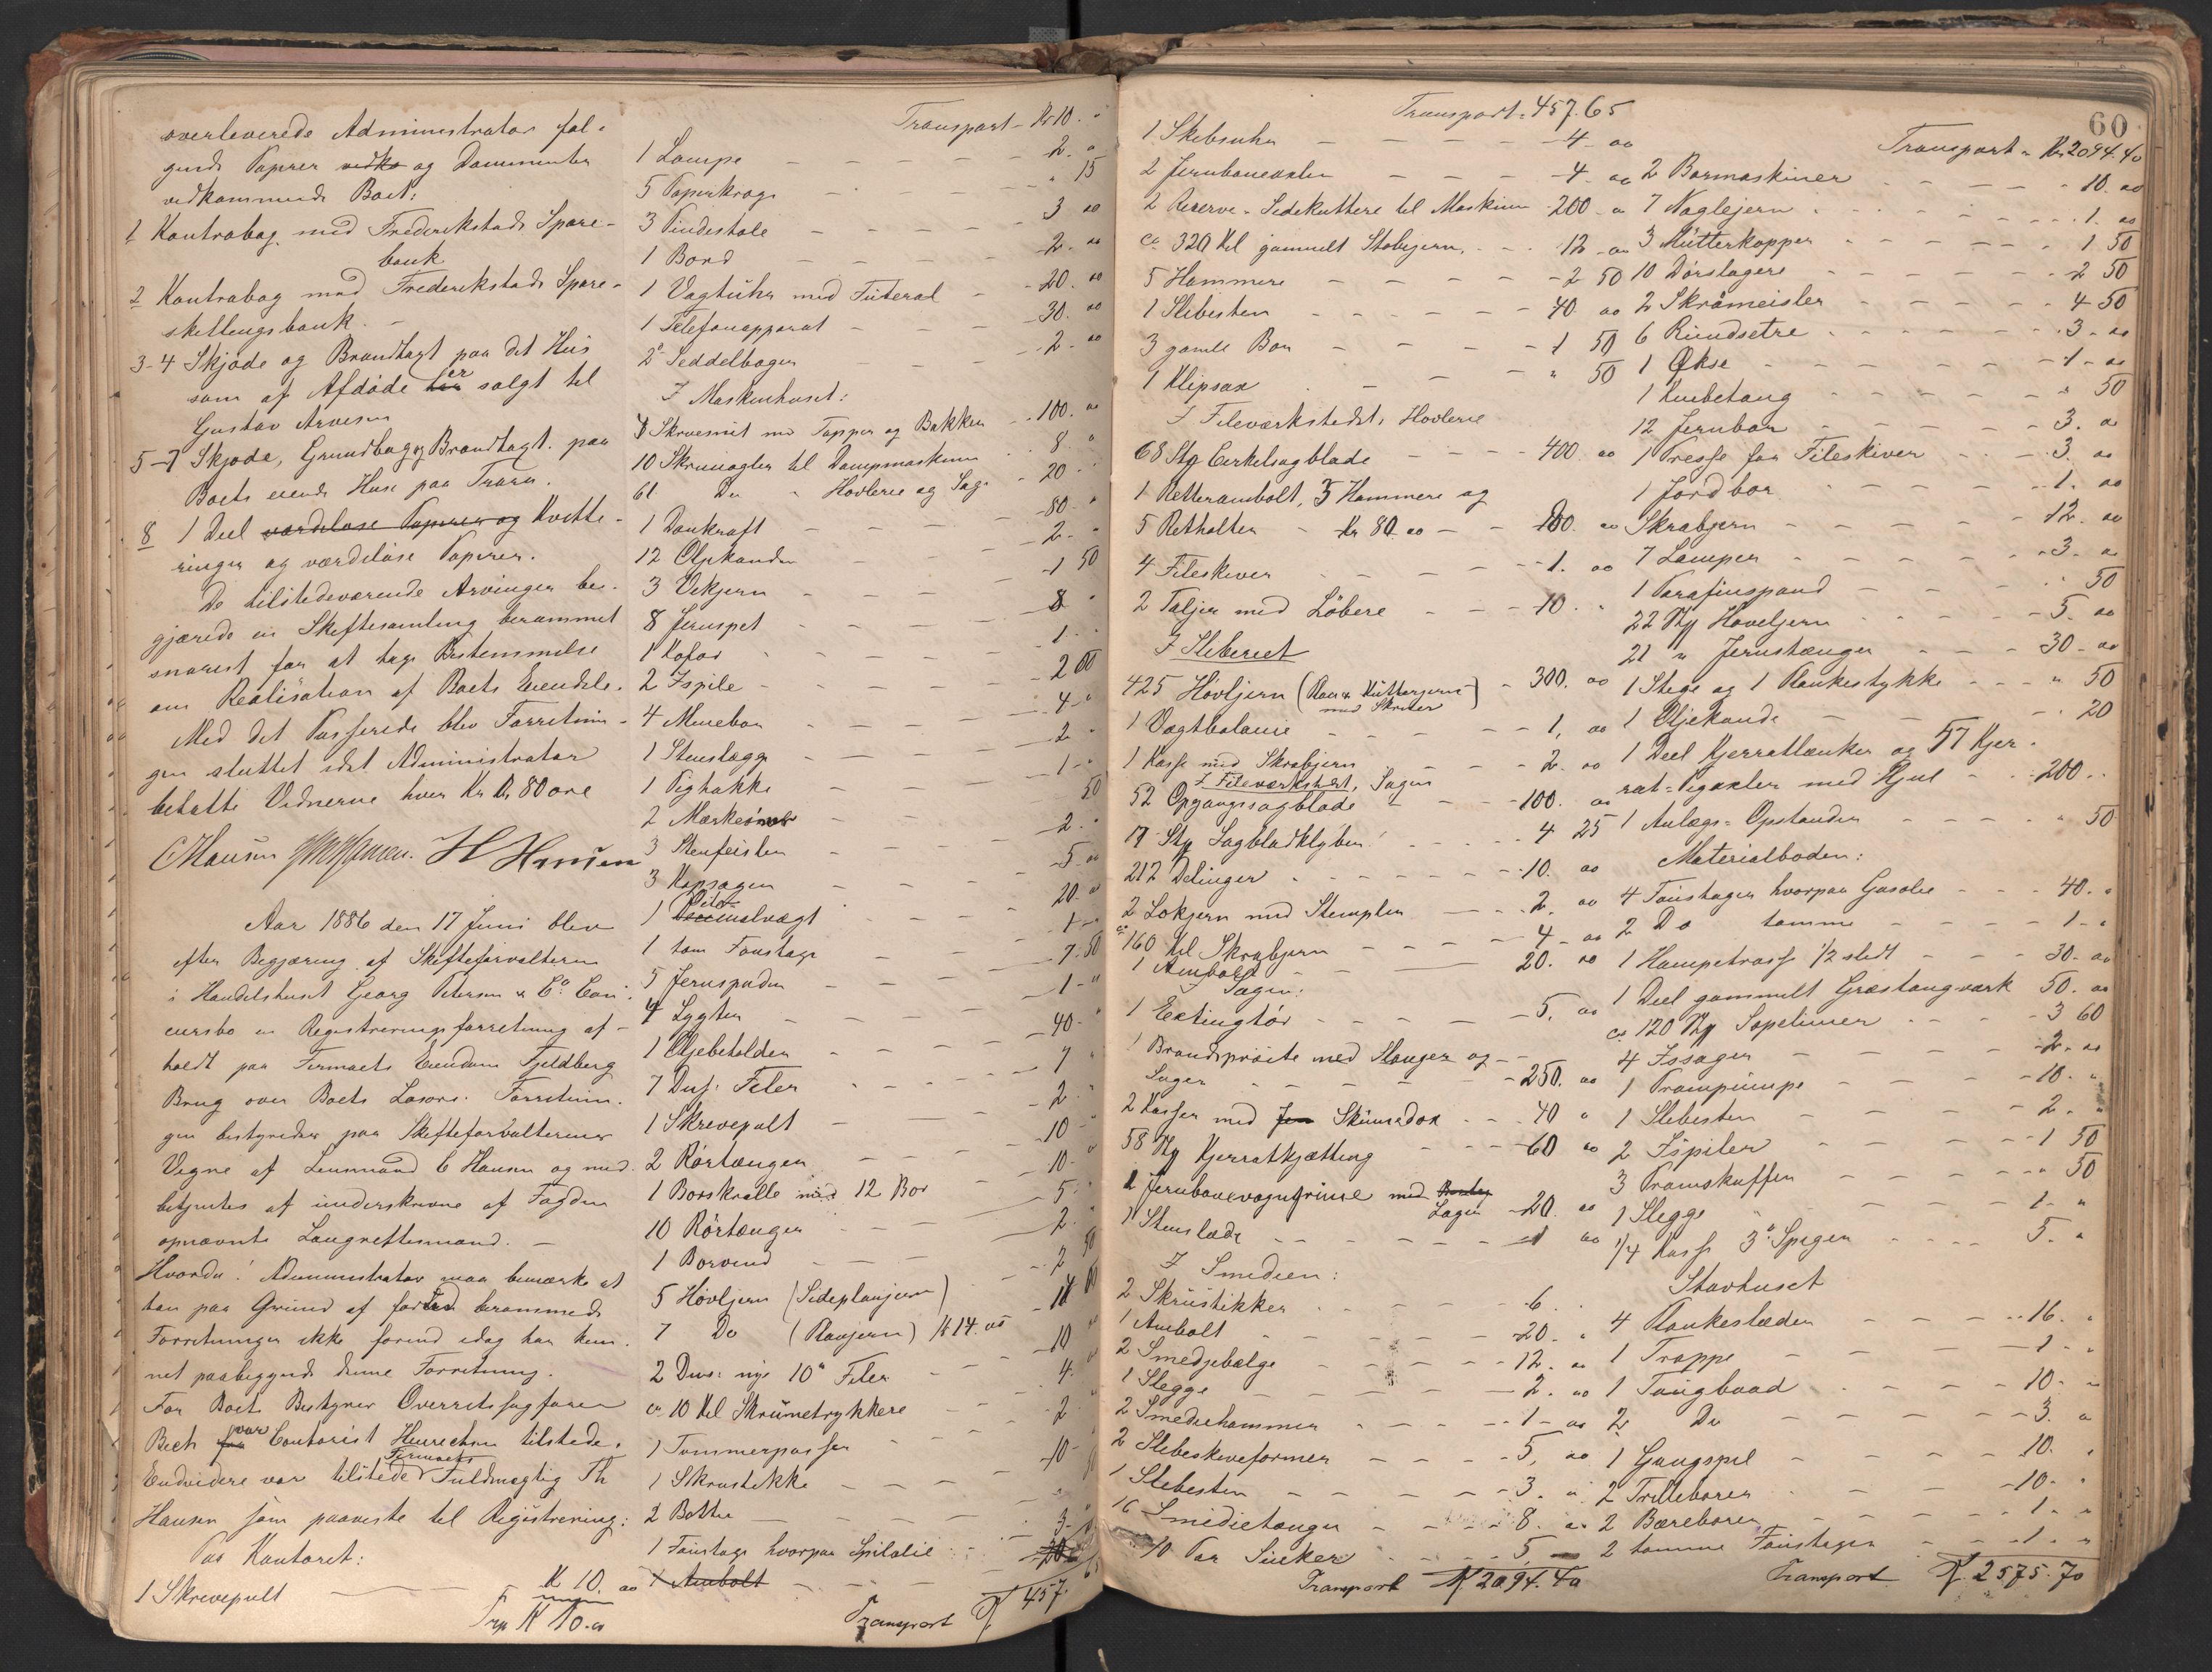 overleverede Administrator føl-
gende Papirer vedko og Documenter
vedkommende Boet:
1 Kontrabog med Frederikstads Spare-
bank
2 Kontrabog med Frederikstads Spare-
skillingsbank. -
3-4 Skjøde og Brandtaxt paa det Hus
som af Afdøde har er solgt til
Gustav Arvesen
5-7 Skjøde, Grundbog og Brandtaxt. paa
Boets eiende Huse paa Trara.
8 1 Deel værdiløse Papirer og Kvitte-
ringer og værdiløse Papirer.
De tilstedeværende Arvinger be-
gjærede en Skiftesamling berammet
snarest for at tage Bestemmelse
om Realisation af Boets Eiendele.
Med det Passerede blev Forretnin-
gen sluttet idet Administrator
betalte Vidnerne hver Kr 0, 80 øre
C Hansen H Hansen
Aar 1886 den 17 Juni blev
efter Begjæring af Skifteforvalteren
i Handelshuset Georg Petersen & Co. Con-
cursbo en Registreringsforretning af-
holdt paa Firmaets Eiendom Fjeldberg
Brug over Boets Løsøre. Forretnin-
gen bestyredes paa Skifteforvalterens
Vegne af Lensmand C Hansen og med-
betjentes af underskrevne af Fogden
opnævnte Laugrettesmænd. -
Hvorda! Administrator maa bemærke at
han paa Grund af fortsat berammede
Forretninger ikke forend idag har kun-
net paabegynde denne Forretning.
For Boets Bestyrer Overretssagfører
Bech for var Contorist Henrichsen tilstede.
Endvidere var tilstede Firmaets Fuldmægtig Th
Hansen som paaviste til Registrering:
Paa Kontoret:
1 Skrivepult K 10. 00
Trsp K 10. 00
Transport - Kr 10. "
1 Lampe - 2. "
5 Papirkroge - " 15
3 Pindestole - 3 00
1 Bord - 2. 00
1 Vægtuhr med Futeral - 20. 00
1 Telefonapparat - 30. 00
2 Seddelbøger - 2. 00
I Maskinhuset:
1 Skruesnit med Tapper og Bakker - 100. 00
10 Skrunøgler til Dampmaskinen 8. "
61 Do " Høvleri og Sag - 20 "
1 Donkraft - 80. "
12 Oljekander - 2. "
3 Vekjern - 1 50
8 Jernspet - 8 "
1 Kofod - 1. "
2 Ispile - 2 00
4 Minebor - 4. "
1 Stenslægge - 2 "
1 Pighakke - 1. "
2 Mærke - 50
3 Stenfeisler - 2. "
3 Kapsager - 5 00
1 Decimalvægt - 20. 00
1 tom Foustage 1. "
5 Jernspader - 7. 50
4 Lygter - 1. "
1 Oljebeholder - 40. "
7 Dus: Filer - 7 "
1 Skrivepult - 2. "
2 Rørtænger - 10. "
1 Borskralle med 12 Bor 10. "
10 Rørtænger - 5. "
1 Borvind - 2. "
5 Høvljern (Sideplanjern) 2 50
7 Do (Planjern) K 14. 00 14 00
2 Dus: nye 10" Filer - 10 "
ca 10 Kil Skrumetrykkere 4. "
1 Tømmerpasser - 2 "
1 Skrustikke - 10. "
2 Bøtter
1 Foustage hvorpaa Spilolie - 3. "
1 Ambolt - 20
Transport K 457. 65
Transport - 457. 65
1 Skibsuhr - 4. 00
2 Jernbaneaxler - 4. 00
2 Reserve - Sidekuttere til Maskiner 200. 00
ca 320 Kil gammelt Støbejern. - 12. 00
5 Hammere - 2 50
1 Slibesten - 40. 00
3 gamle Bor - 1 50
1 Klipsax - " 50
I Fileværkstedet, Høvleriet
68 Stg Cirkelsagblade - 400. 00
1 Retterambolt, 3 Hammere og
5 Retholter - Kr 80. 00 - 100. 00
4 Fileskiver - 1. 00
2 Taljer med Løbere - 10. "
I Sliberiet
425 Høvljern (Plan & Kutterjern
med Skruer) - 300. 00
1 Vægtbalance - 1, 00
1 Kasse med Skrabjern - 2. 00
I Fileværkstedet, Sagen
52 Opgangssagblade - 100. 00
17 Stg Sagbladklyber - 4 25
217 Delinger - 10. 00
2 Lokjern med Stempler - 2. 00
ca 160 Kil Skrabjern - 4. 00
1 Ambolt - 20. 00
Sagen:
1 Extingtør - 5. 00
1 Brandsprøite med Slanger og
Sager - 250. 00
2 Kasser med Jern Skinnedox - 40 "
58 Kg Kjerratkjætting - 60 00
2 Jernbanevogngrinne med Lager - 20. 00
1 Stenslæde - 1 00
I Smedien:
2 Skrustikker - 6. "
1 Ambolt - 20. "
2 Smedjebælge - 12. 00
1 Slegge - 2. 00
2 Smedhammer - 1. 00
2 Slibeskiveformer - 5, 00
1 Slibesten - 3. "
16 Smedietænger - 8. 00
10 Par Sinker - 5
Transport K 2094. 40
60
Transport - Kr 2094. 40
2 Bormaskiner - 10. 00
7 Naglejern - 1. 00
3 Kutterkopper - 1 50
10 Dørslagere - 2 50
2 Skråmeisler - 4 50
6 Rundsetre - 3. 00
1 Økse - 1. 00
1 Knibetang - " 50
12 Jernbor - 3. 00
1 Presse for Fileskiver - 3. 00
1 Jordbor - 1. 00
Skrabjern - 12. 00
7 Lamper - 3. 00
1 Parafinspand - " 50
22 Kg Høveljern - 5. 00
21 " Jernstænger - 30. 00
1 Stige og 1 Plankestykke - " 50
1 Oljekande - " 20
1 Deel Kjerratlænker og 57 Kjer-
rat-Pigaxler med Hjul - 200. "
1 Anlægs-Opstander - " 50
Materialboden:
4 Foustager hvorpaa Gasolie - 40. "
2 Do tomme - 1. "
1 Hampetrosse 1/2 slidt - 30. 00
1 Deel gammelt Græstougværk 50. 00
ca 120 Kg Sopelimer - 3 60
4 Issager - 2. 00
1 Prampumpe - 10. "
1 Slibesten - 2. "
2 Ispiler - 1 50
3 Pramskuffer - " 50
1 Slegge - 1. "
1/4 Kasse 3" Spiger - 5. "
Stavhuset
4 Plankeslæder - 16. "
1 Trappe - 1. "
1 Tougbaad - 10. "
2 Do - 3. "
1 Gangspil - 10. "
2 Trillebører - 10. "
2 Bærebører - 1. "
2 tomme Foustager - 1. "
Transport K. 2575. 70